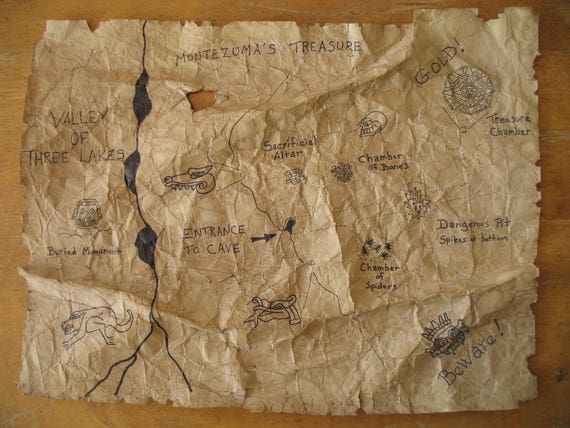 MONTEZUMA'S TREASURE
GOLD!
VALLEY
OF
THREE LAKES
Treasure
Chamber
Sacrificial
Altar
Chamber
of Bones
ENTRANCE
TO CAVE
Dangerous Pit
Spikes at bottom
Buried Monument
Chamber
of
Spiders
Beware!